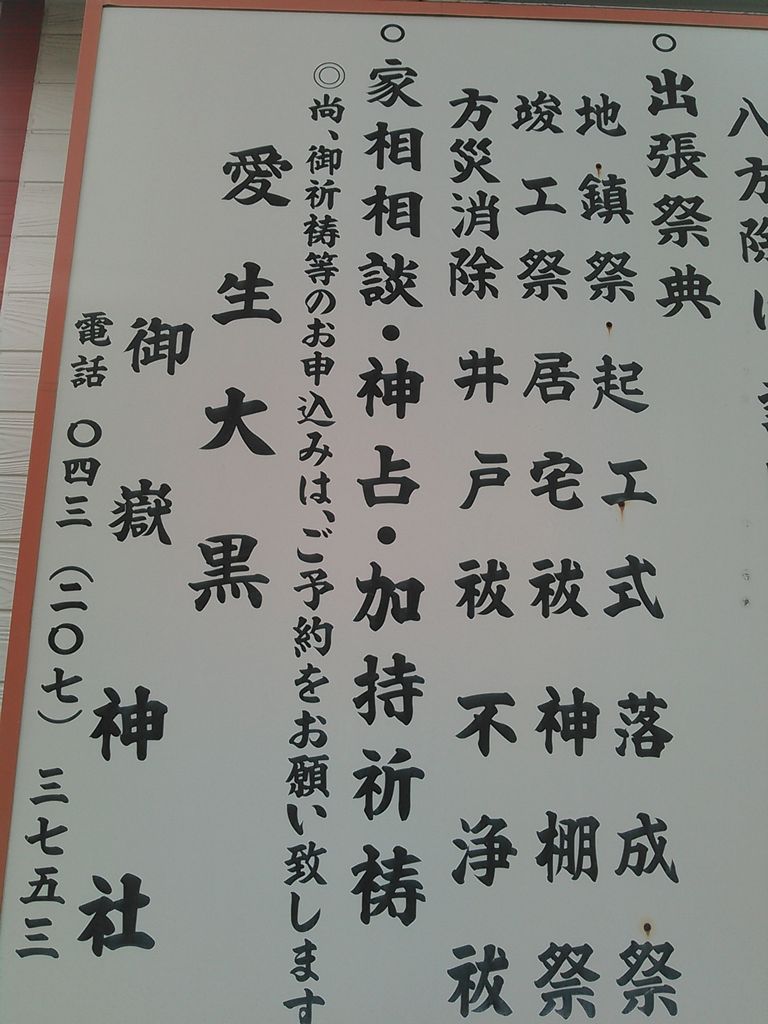 八方除け
○出張祭典
地鎮祭・起工式 落成祭
竣工祭 居宅祓 神棚祭
方災消除 井戸祓 不浄祓
○家相相談・神占・加持祈祷
◎尚、御祈祷等のお申込みは、ご予約をお願い致します
愛生大黒
御嶽神社
電話 〇四三(二〇七)三七五三